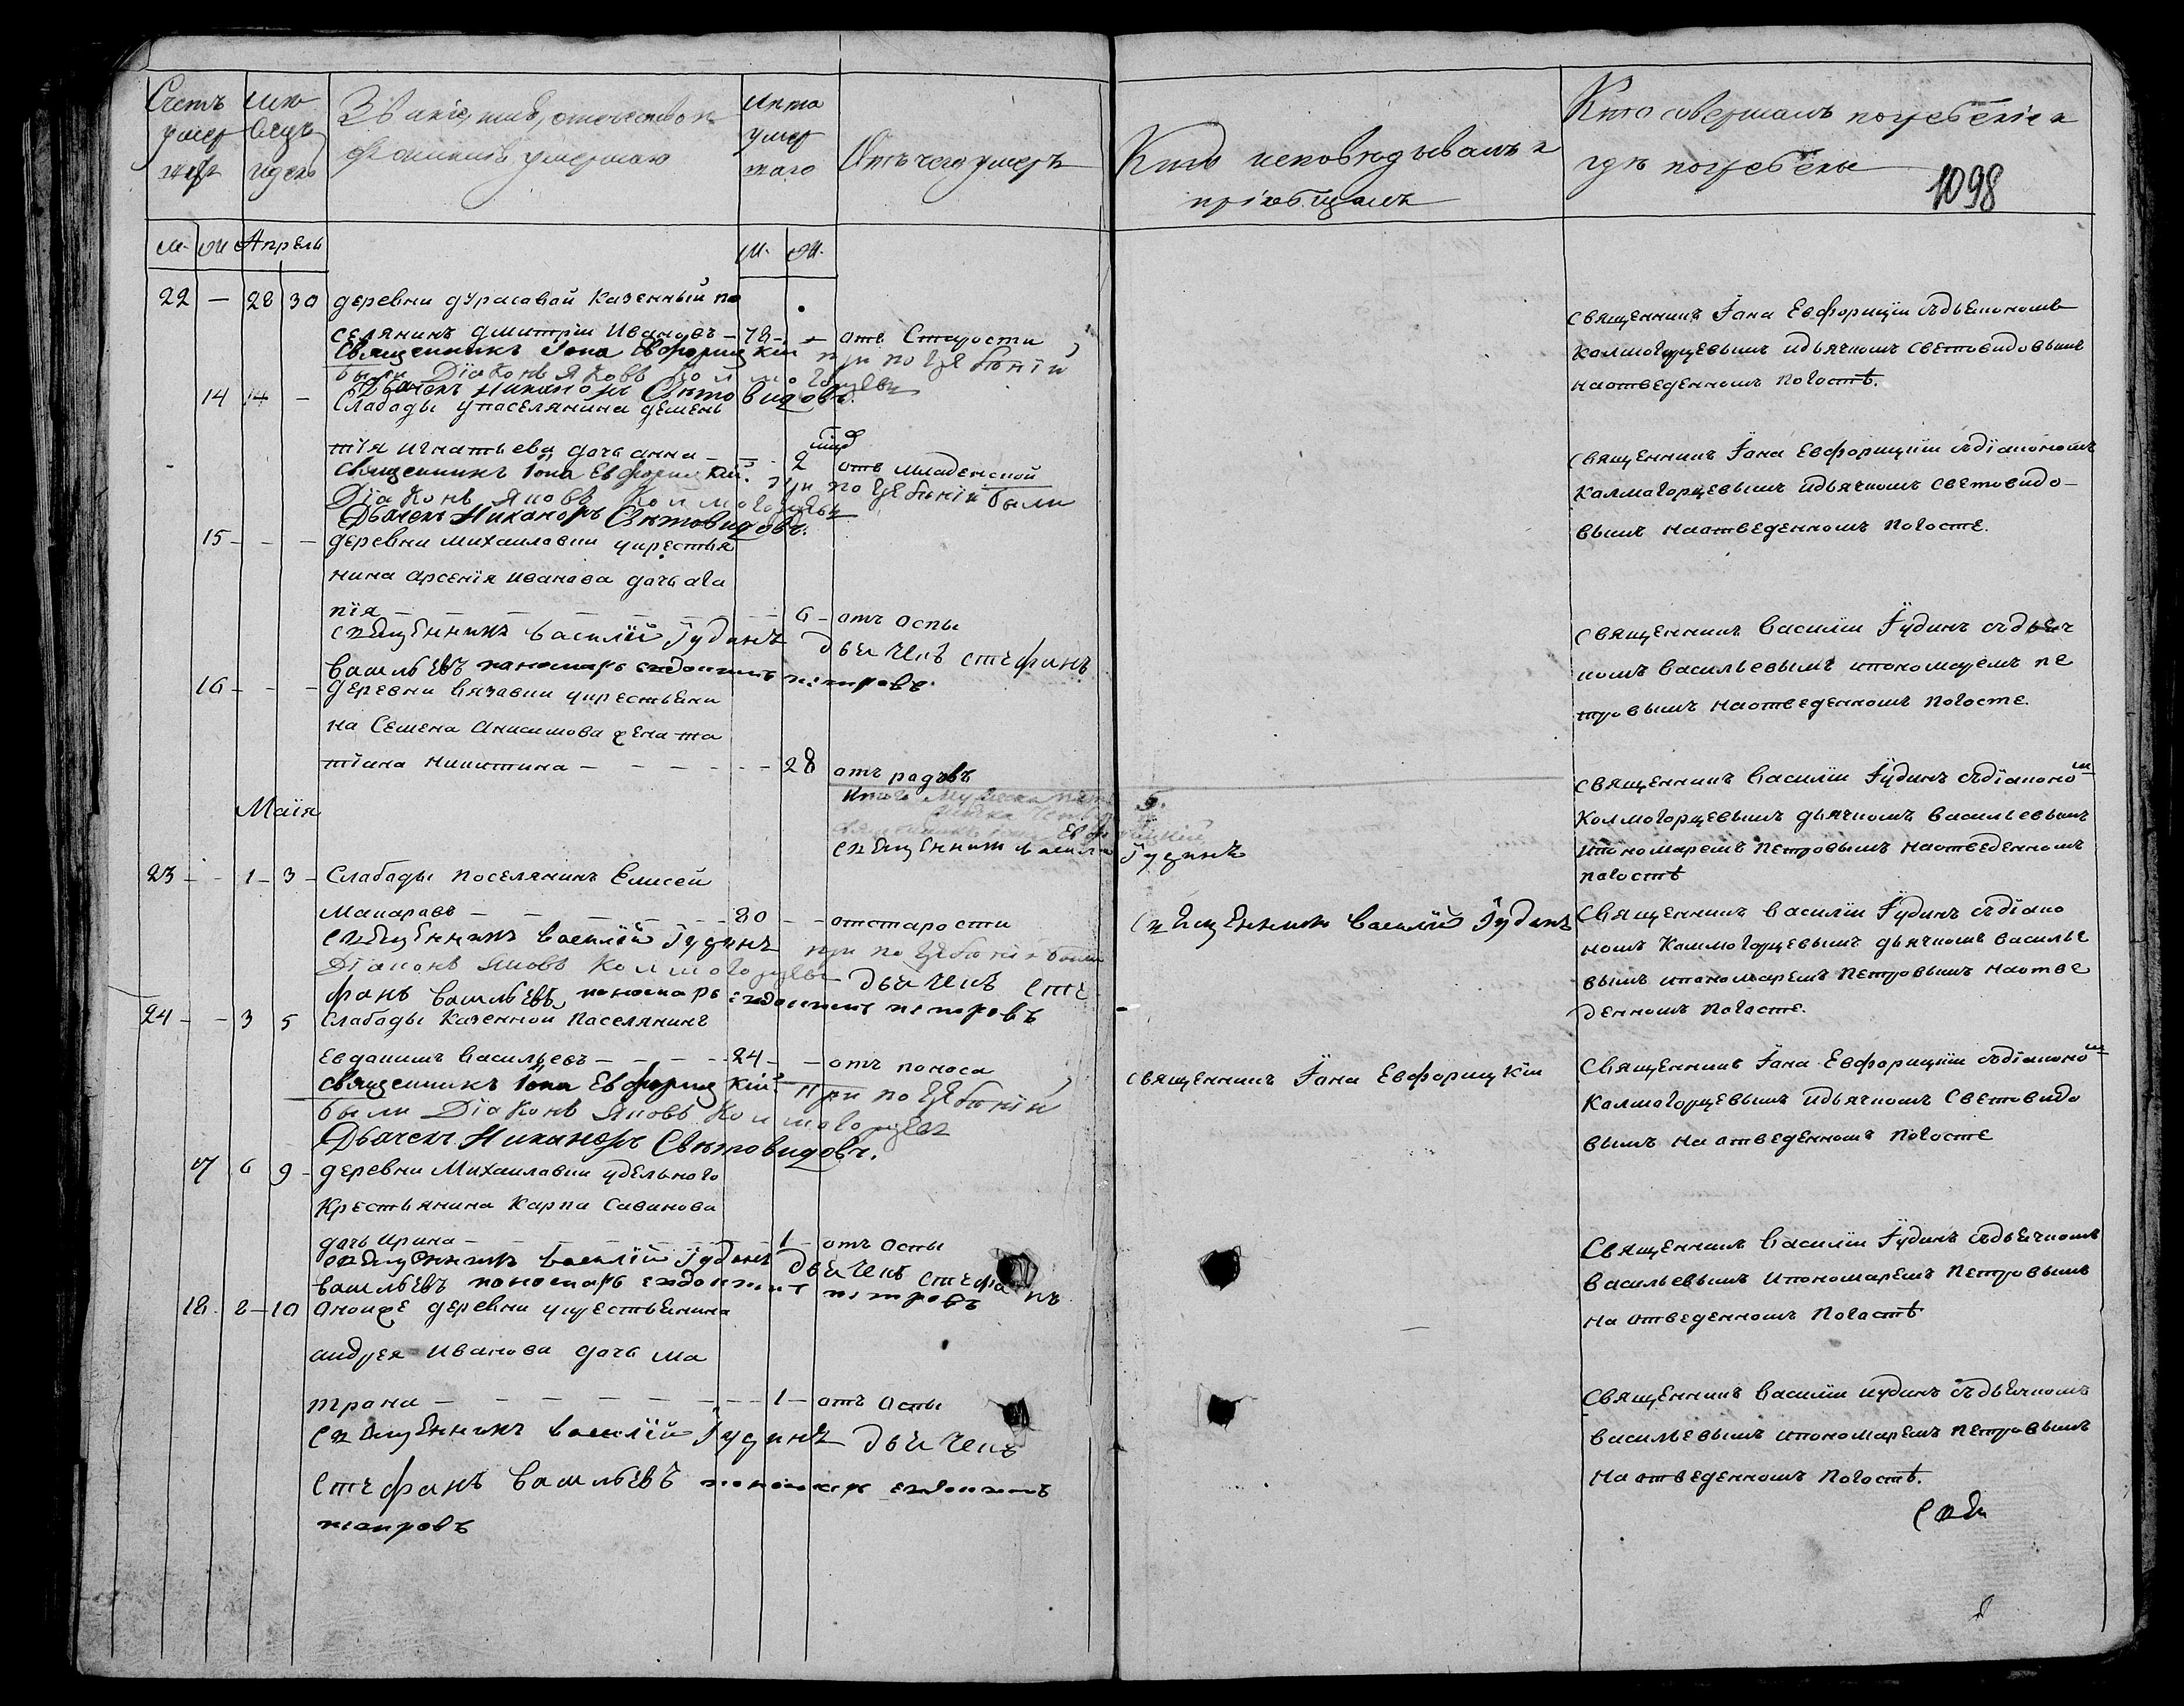 Счетъ умер шихъ
Мѣсяцъ и день
Званіе, имя, отечество и
фамилія умершаго
Лѣта умер шаго
Отъ чего умеръ
Кто исповѣдывалъ и
пріобщалъ
Кто совершалъ погребеніе и
гдѣ погребены
1098
М. Ж. Апрель М. Ж.
22 — 28 30 деревни дурасавай казенный по
селянинъ Дмитрій Ивановъ — 78 — — отъ Старости
Священникъ Іона Евфорицкій при погребеніи
были Діаконъ Яковъ Колмогорцевъ
Дьячекъ Никаноръ Свѣтовидовъ.
священникъ Іана Евфорицкіи съдьякономъ
Калмагорцевымъ идьячкомъ Световидовымъ
наотведенномъ Погостѣ.
14 14 — Слабады упаселянина демень
тїя игнатьева дочь анна — — 2 отъ младенской
священникъ Іона Евфорицкій. при погребеніи были
Діаконъ Яковъ Колмогорцевъ
Дьячекъ Никаноръ Свѣтовидовъ.
священникъ Іана Евфорицкіи съдіакономъ
Калмагорцевымъ идьячкомъ световидо-
вымъ наотведенномъ погосте.
15 — — — деревни михаилавки укрестья
нина арсенїя иванова дочь ага
пїя — — — — — — 6 — отъ оспы
священникъ Василій Іудинъ дьячекъ стефанъ
васильевъ пономарь евдокимъ петровъ.
священникъ Василіи Іудинъ съдьяч
комъ васильевымъ ипономаремъ пе
тровымъ наотведенномъ погосте.
16 — — — деревни вязавки укрестьени
на Семена Анисимова жена та
тїана никитина — — — — — 28 отъ родъвъ
священникъ Василіи Іудинъ съдіаконом
Колмогорцевымъ дьячкомъ васильевымъ
ипономаремъ петровымъ наотведенномъ
пагостѣ
Итого Мужеска 5.
священникъ Іона Евфорицкій
священникъ василій Іудинъ
Маїя
23 — — 1 — 3 — Слабады поселянинъ Елисей
Макаравъ — — — — — 80 — — отстарости
священникъ Василій Іудинъ при погребеніи были
Діаконъ Яковъ Колмогорцевъ дьячекъ сте
фанъ васильевъ пономарь евдокимъ петровъ
священникъ василій Іудинъ
Священникъ василіи Іудинъ съдіако
номъ Калмогорцевымъ дьячкомъ василье
вымъ ипономаремъ петровымъ наотве
денномъ погосте.
24 — — 3 5 Слабады казенной паселянинъ
Евдакимъ васильевъ — — — — 24 — — отъ поноса
священникъ Іона Евфорицкій При погребеніи
были Діаконъ Яковъ Колмогорцевъ
Дьячекъ Никаноръ Свѣтовидовъ.
священникъ Іана Евфорицкіи
Священникъ Іана Евфорицкіи съдіаконом
Калмагорцевымъ идьячкомъ Световидо
вымъ на отведенномъ погосте
17 6 9 — деревни михаилавки удельного
крестьянина карпа Саванова
дочь ирина — — — — — 1 — отъ оспы
священникъ василій Іудинъ дьячекъ стефанъ
васильевъ пономарь евдокимъ петровъ
Священникъ Василіи Іудинъ съдьячкомъ
васильевымъ ипономаремъ петровымъ
на отведенномъ погостѣ
18 . 8 — 10 оноиже деревни укрестьенина
андрея иванова дочь ма
трона — — — — — — 1 — отъ оспы
священникъ василій Іудинъ дьячекъ
стефанъ васильевъ пономарь евдокимъ
петровъ
Священникъ Василіи иудинъ съдьячкомъ
васильевымъ ипономаремъ петровымъ
на отведенномъ погостѣ.